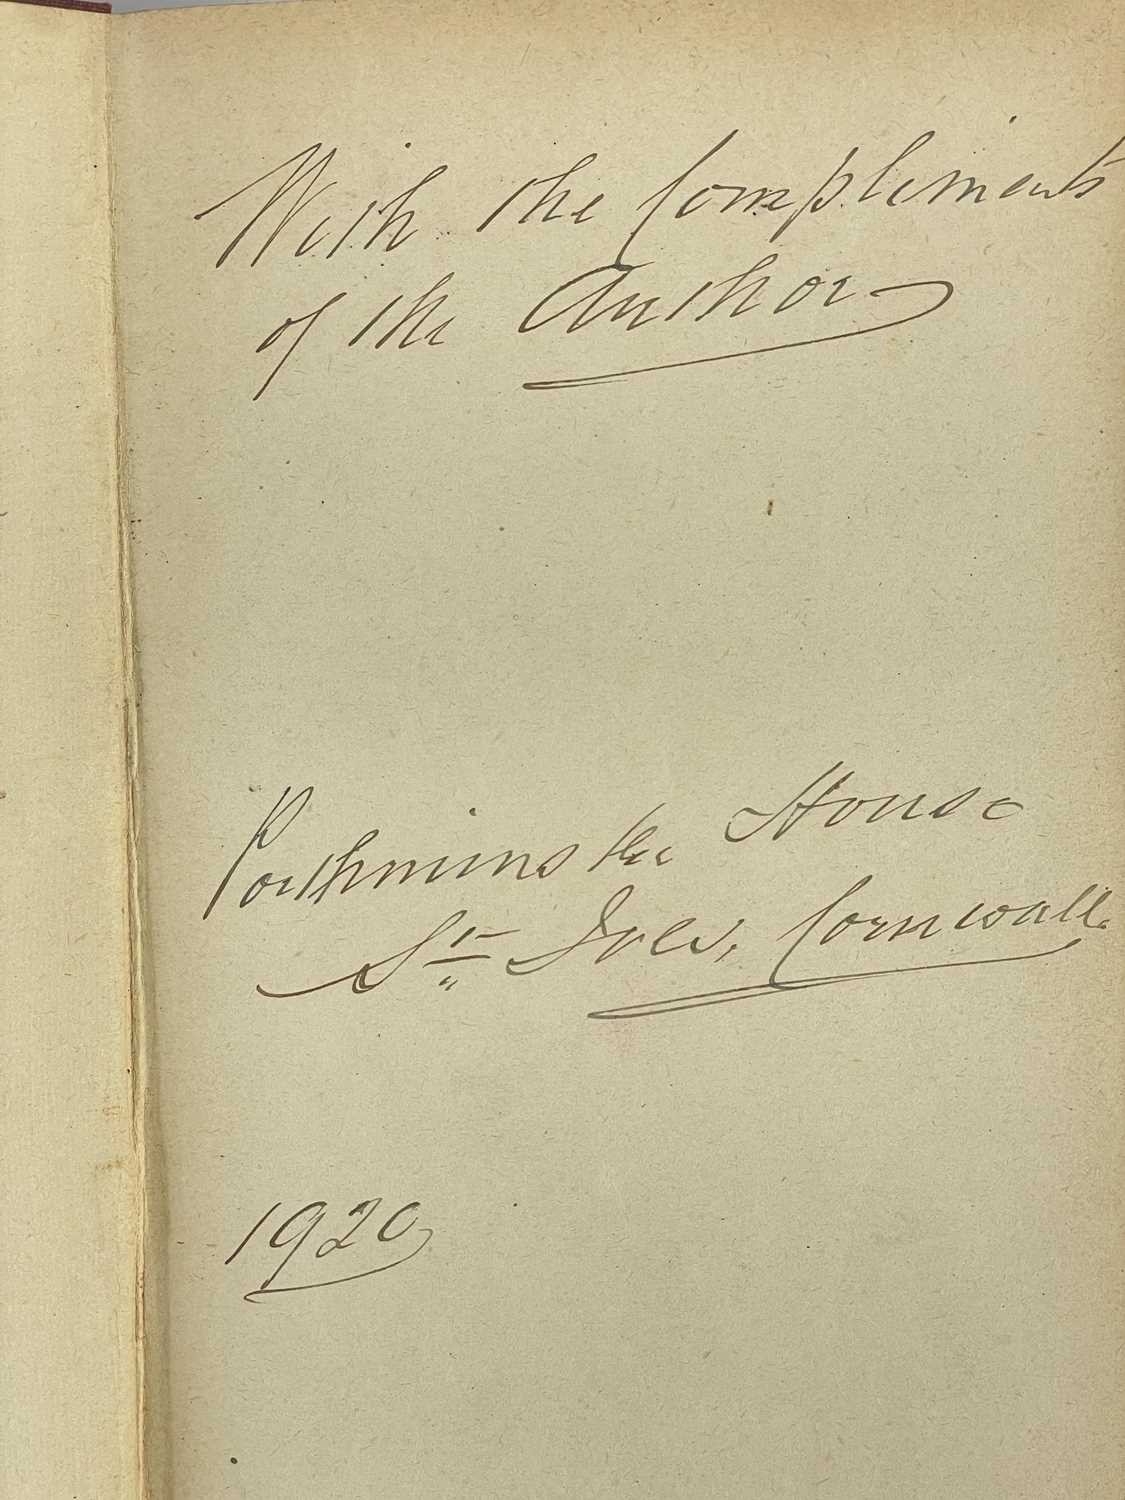 With the Compliments
of the Author
Porthminster House
St Ives, Cornwall.
1920